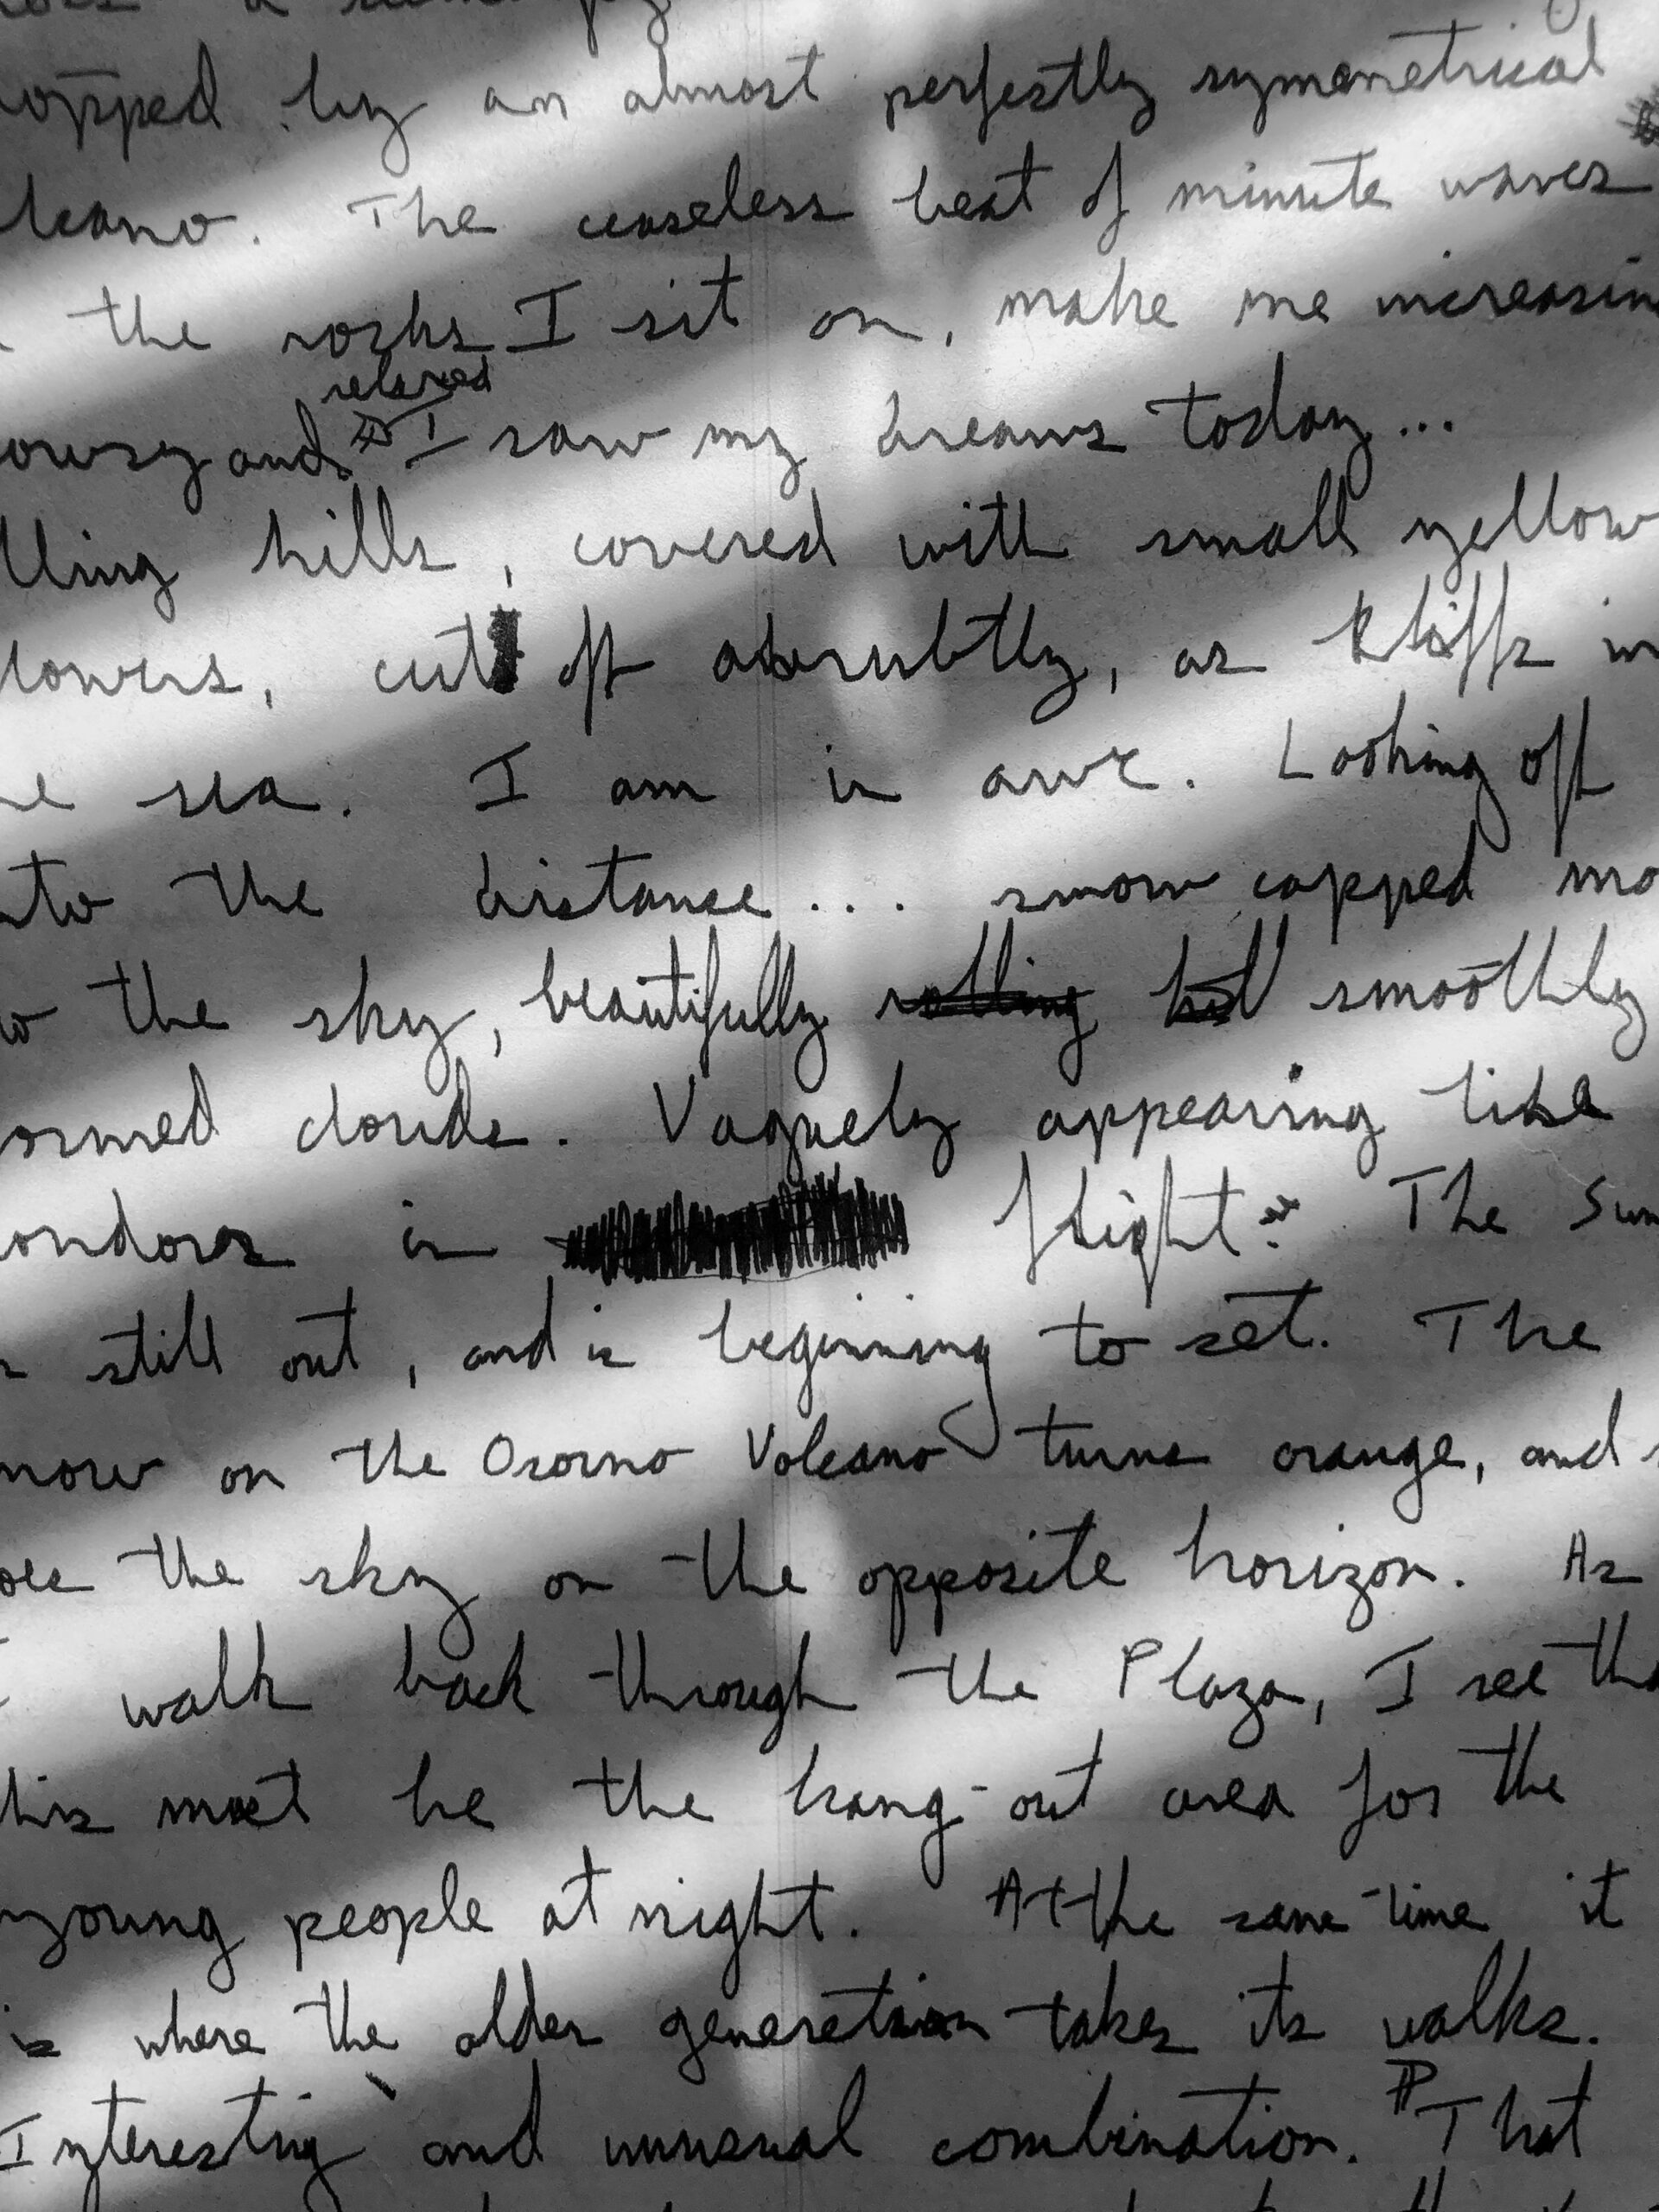 opped by an almost perfectly symmetrical
lcano. The ceaseless beat of minute waves
the rocks I sit on, make me increasin
relaxed
owsy and I saw my dreams today...
lling hills, covered with small yellow
lowers, cut off abrubtly, as kliffs in
he sea. I am in awe. Looking off
nto the distance... snow capped mo
to the sky, beautifully rolling hil smoothly
ormed clouds. Vaguely appearing like
ondores in flight. The Sun
s still out, and is beginning to set. The
now on the Osorno Volcano turns orange, and
oes the sky on the opposite horizon. As
I walk back through the Plaza, I see tha
his must be the hang-out area for the
young people at night. At the same time it
is where the older generation takes its walks.
Interesting and unusual combination. That